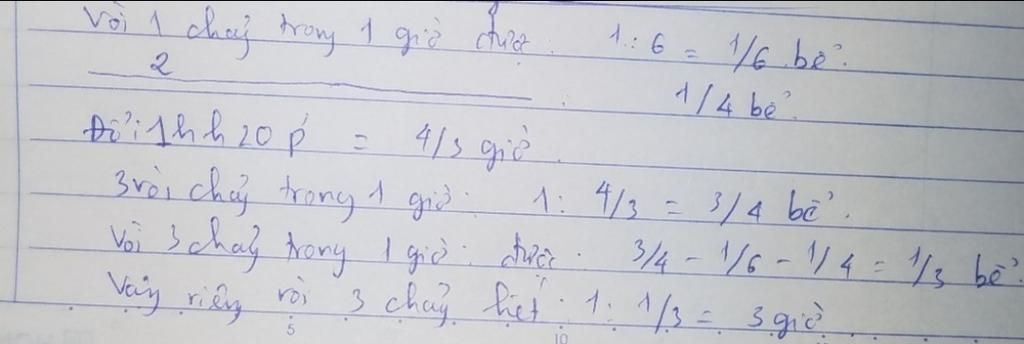 Vòi 1 chảy trong 1 giờ được. 1 : 6 = 1/6 bể.
2 1/4 bể
Đổi: 1h h 20 p = 4/3 giờ.
3 vòi chảy trong 1 giờ: 1 : 4/3 = 3/4 bể.
Vòi 3 chảy trong 1 giờ: được. 3/4 - 1/6 - 1/4 = 1/3 bể.
Vậy riêng vòi 3 chảy hết: 1 : 1/3 = 3 giờ
5 10